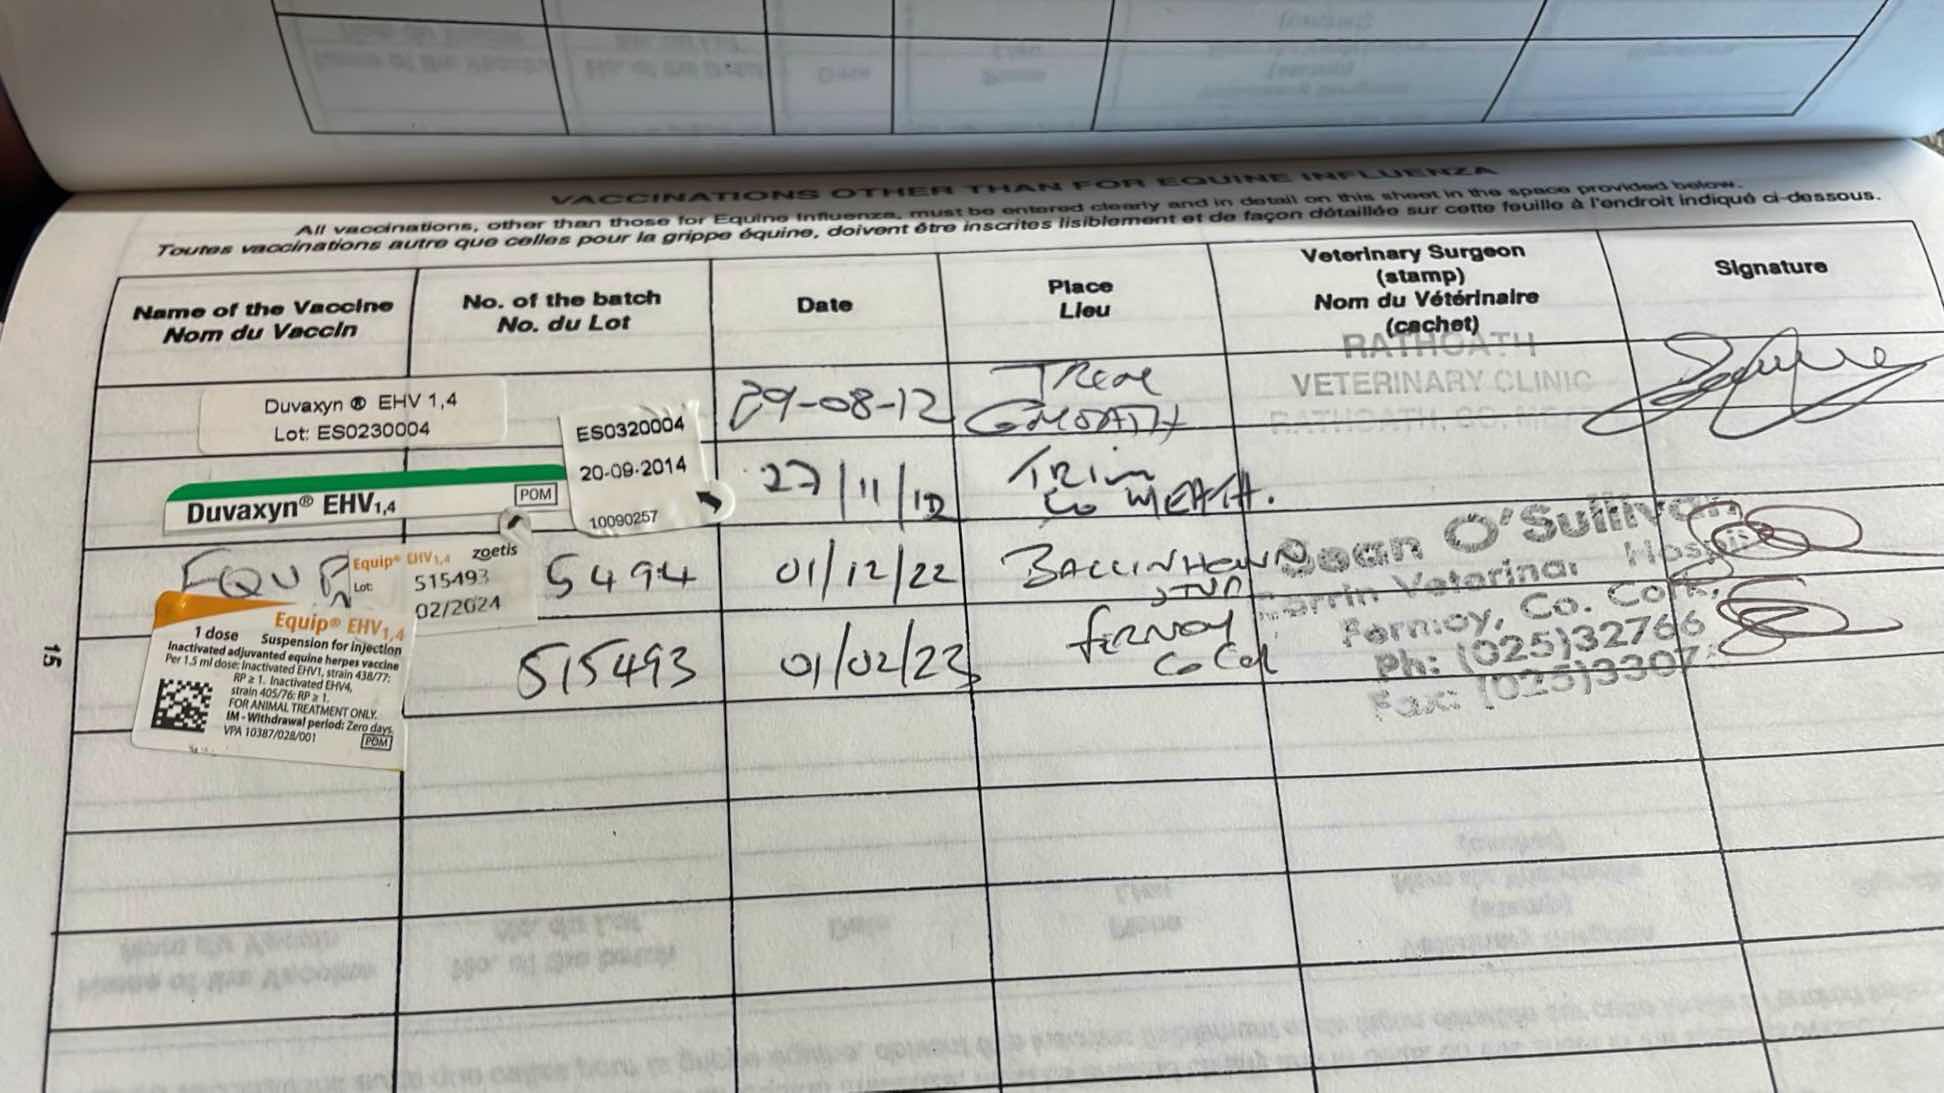 VACCINATIONS OTHER THAN FOR EQUINE INFLUENZA
All vaccinations, other than those for Equine Influenza, must be entered clearly and in detail on this sheet in the space provided below.
Toutes vaccinations autre que celles pour la grippe équine, doivent être inscrites lisiblement et de façon détaillée sur cette feuille à l'endroit indiqué ci-dessous.
Name of the Vaccine
Nom du Vaccin
No. of the batch
No. du Lot
Date
Place
Lieu
Veterinary Surgeon
(stamp)
Nom du Vétérinaire
(cachet)
Signature
Duvaxyn ® EHV 1,4
Lot: ES0230004
29-08-12
RATHOATH
VETERINARY CLINIC
RATHOATH, CO. MEATH
Duvaxyn® EHV1,4
POM
ES0320004
20-09-2014
10090257
27/11/12
TRIM
Co MEATH.
EQUIP
Equip® EHV1,4 zoetis
Lot: 515493
02/2024
5494
01/12/22
Sean O'Sullivan
Veterinary Hospital
Fermoy, Co. Cork.
Ph: (025)32766
Fax: (025)3307
Equip® EHV1,4
1 dose Suspension for injection
Inactivated adjuvanted equine herpes vaccine
Per 1.5 ml dose: Inactivated EHV1, strain 438/77:
RP ≥ 1. Inactivated EHV4,
strain 405/76: RP ≥ 1.
FOR ANIMAL TREATMENT ONLY.
IM - Withdrawal period: Zero days.
VPA 10387/028/001
POM
515493
01/02/23
FERMOY
Co Cork
15